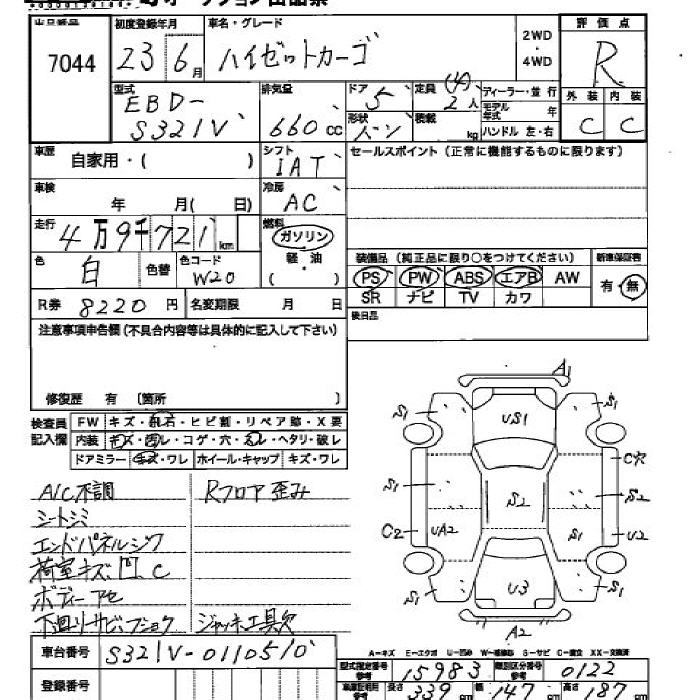 出品番号 7044
初度登録年月 23 6月
車名・グレード ハイゼットカーゴ
2WD・4WD
評価点 R
外装 C 内装 C
型式 EBD-S321V
排気量 660cc
ドア 5
形状 バン
定員 (4) 2人
積載 kg
ディーラー・並行
モデル年式 年
ハンドル 左・右
車歴 自家用・( )
シフト IAT
セールスポイント(正常に機能するものに限ります)
車検 年 月( 日)
冷房 AC
走行 4万9千721km
燃料 ガソリン 軽・油 ( )
色 白 色替
色コード W20
装備品(純正品に限り○をつけてください) 新車保証書
PS PW ABS エアB AW 有・無
SR ナビ TV カワ
R券 8220円 名変期限 月 日
後日品
注意事項申告欄(不具合内容等は具体的に記入して下さい)
修復歴 有 〔箇所 〕
検査員記入欄
FW キズ・飛石・ヒビ割・リペア跡・X要
内装 キズ・汚レ・コゲ・穴・ ・ヘタリ・破レ
ドアミラー キズ・ワレ ホイール・キャップ キズ・ワレ
A/C不調 Rフロア歪み
シートシミ
エンドパネルシワ
荷室キズ、凹C
ボディーアセ
下廻りサビ、フショク ジャッキ工具欠
A1
S1 US1 S1
C穴
S1 S2 S2
C2 UA2 S1 U2
S1 U3 S1
A2
A-キズ E-エクボ U-凹み W-補修跡 S-サビ C-腐立 XX-交換済
車台番号 S321V-0110510
型式指定番号 参考 15983 類別区分番号 参考 0122
登録番号
長さ 339cm 幅 147cm 高さ 187cm